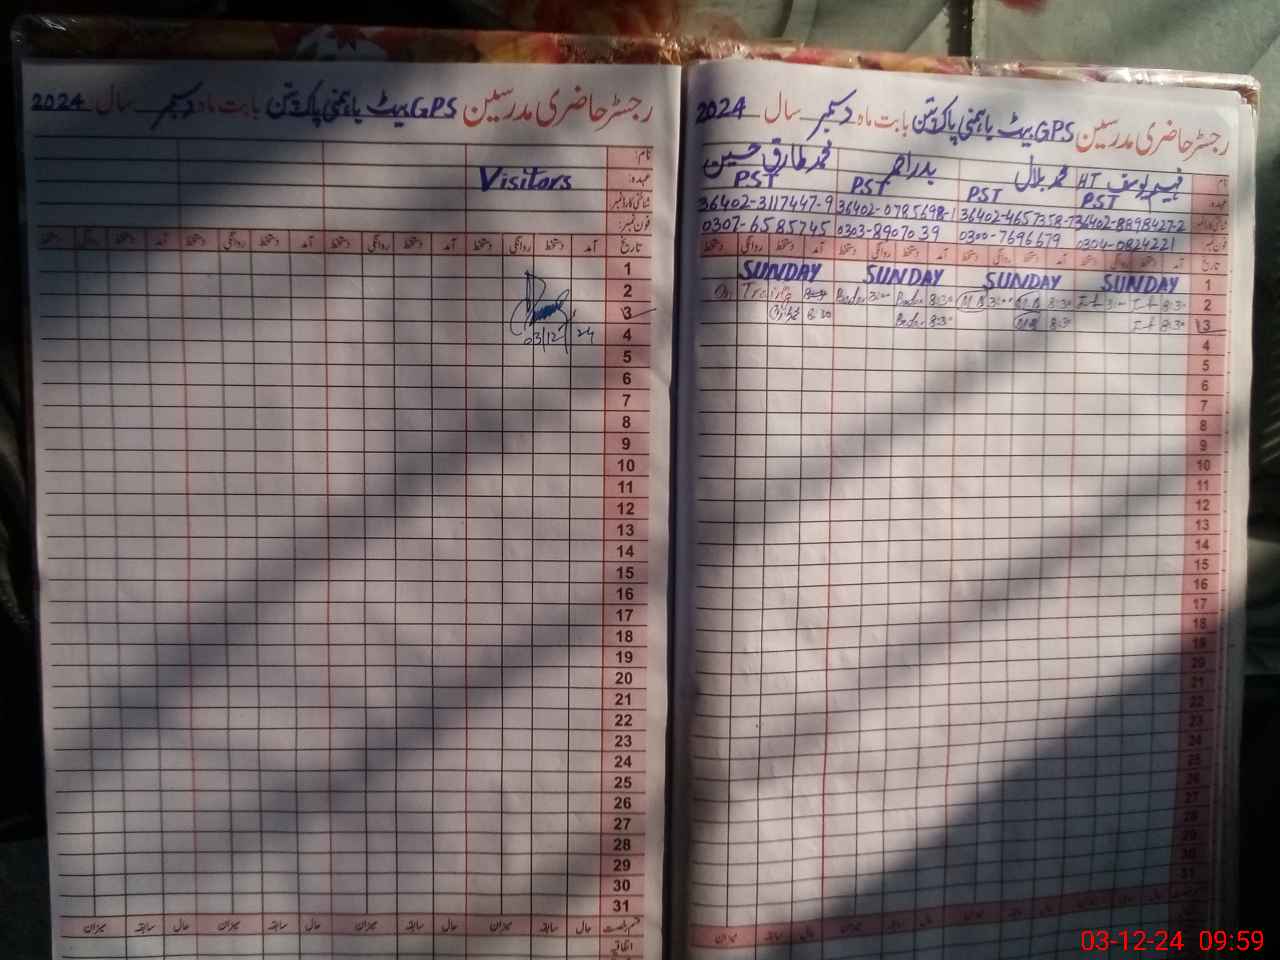 رجسٹر حاضری مدرسین GPS ہیٹ یاہمنی پاکپتن بابت ماہ دسمبر سال 2024
نام:
عہدہ:
Visitors
شناختی کارڈ نمبر
فون نمبر:
تاریخ آمد دستخط روانگی دستخط آمد دستخط روانگی دستخط آمد دستخط روانگی دستخط آمد دستخط روانگی دستخط
1
2
3
03/12/24
4
5
6
7
8
9
10
11
12
13
14
15
16
17
18
19
20
21
22
23
24
25
26
27
28
29
30
31
حال سابقہ میزان حال سابقہ میزان حال سابقہ میزان حال سابقہ میزان
اتفاقیہ
رجسٹر حاضری مدرسین GPS ہیٹ یاہمنی پاکپتن بابت ماہ دسمبر سال 2024
نام HT محمد بلال بدر احمد محمد طارق حسین
PST PST PST PST
36402-3117447-9 36402-0785698-1 36402-4657358-7 36402-8898427-2
0307-6585745 0303-8907039 0300-7696679 0304-0824221
تاریخ آمد دستخط روانگی دستخط آمد دستخط روانگی دستخط آمد دستخط روانگی دستخط آمد دستخط روانگی دستخط
SUNDAY SUNDAY SUNDAY SUNDAY 1
On 3:00 8:30 M.B 3:00 M.B 8:30 8:30 2
8:30 8:30 MB 8:30 8:30 3
4
5
6
7
8
9
10
11
12
13
14
15
16
17
18
19
20
21
22
23
24
25
26
27
28
29
30
31
03-12-24 09:59